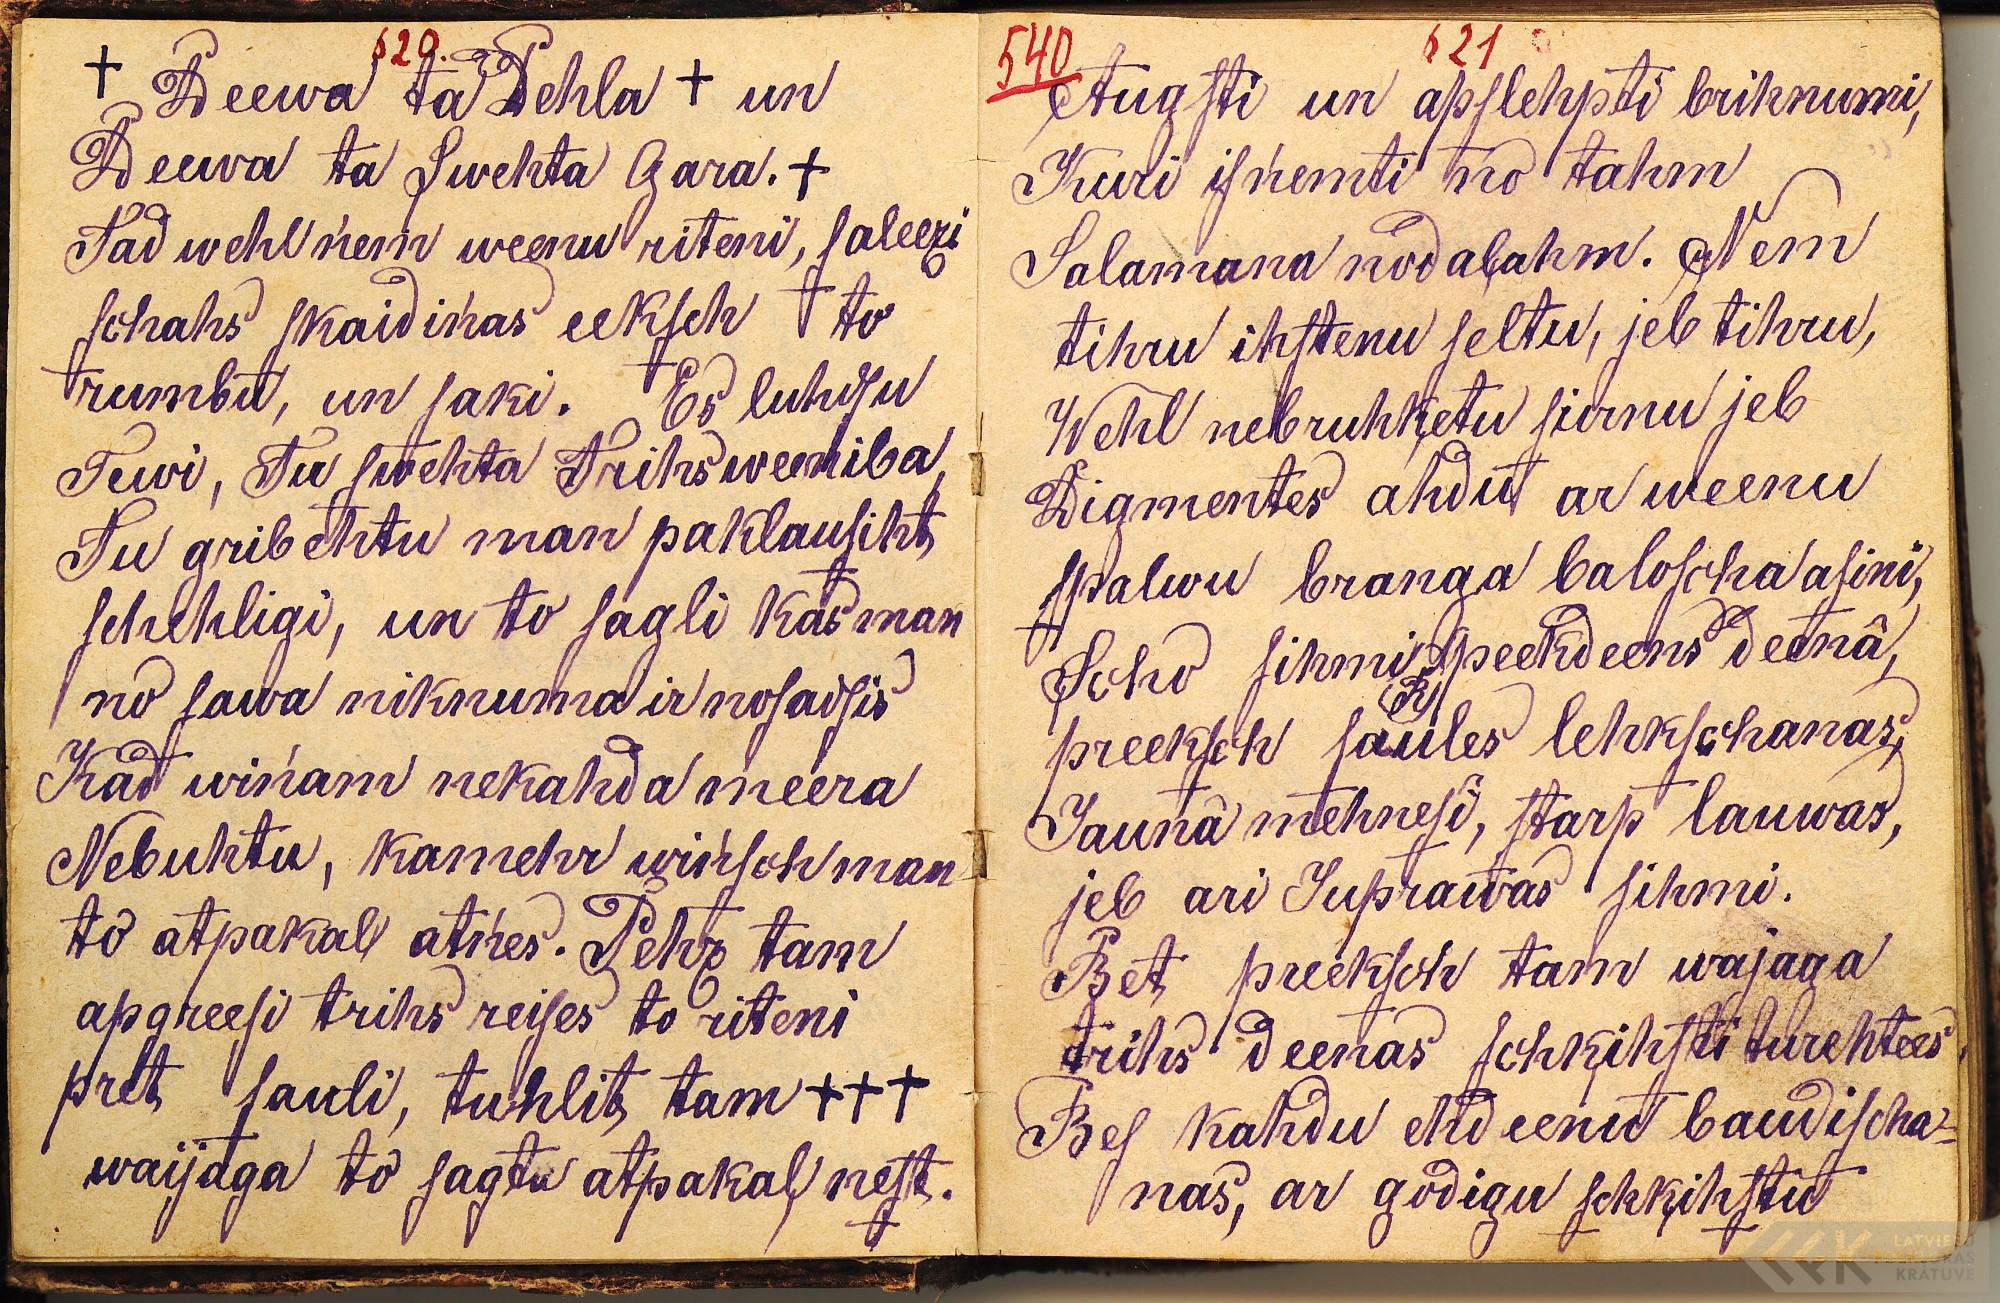 620.
† Deewa ta Dehla † un
Deewa ta Swehta Gara. †
Tad wehl ņem weenu riteni, saleezi
schahs skaidiņas eeksch to
rumbu, un saki. Es luhdsu
Tewi, Tu swehta Trihsweeniba,
Tu gribehtu man paklausiht
schehligi, un to sagli kas man
no sawa niknuma ir nosadsis
Kad wiņam nekahda meera
Nebuhtu, kamehr wiņsch man
to atpakal atņes. Pehz tam
apgreesi trihs reises to riteni
pret sauli, tuhlit tam †††
waijaga to sagtu atpakaļ nest.
540 621
Augsti un apslehpti brihnumi,
Kuri isņemti no tahm
Salamana nodaļahm. Ņem
tihru ihstenu seltu, jeb tihru,
Wehl nebruhķetu sirnu jeb
Digmentes ahdu ar weenu
spalwu branga baloscha asini,
Scho sihmi peekdeens deenâ,
preeksch saules lehkschanas,
Jaunâ mehnesî, starp lauwas,
jeb ari Juprawas sihmi.
Bet preeksch tam wajaga
trihs deenas schķihsti turehtees,
Bes kahdu ehdeenu baudischa=
nas, ar godigu schķihstu
LATVIEŠU
FOLKLORAS
KRĀTUVE